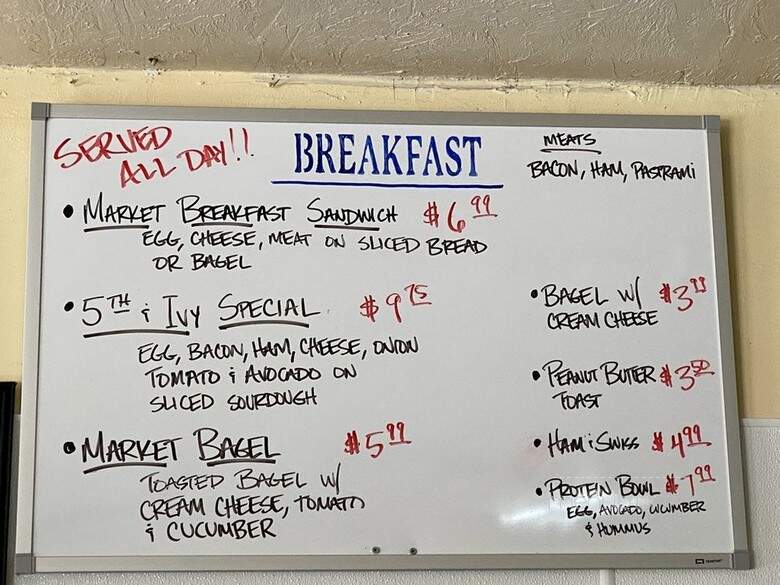 SERVED
ALL DAY!!
BREAKFAST
MEATS
BACON, HAM, PASTRAMI
• MARKET BREAKFAST SANDWICH $6.99
EGG, CHEESE, MEAT ON SLICED BREAD
OR BAGEL
• 5TH & IVY SPECIAL $9.75
EGG, BACON, HAM, CHEESE, ONION
TOMATO & AVOCADO ON
SLICED SOURDOUGH
• MARKET BAGEL $5.99
TOASTED BAGEL W/
CREAM CHEESE, TOMATO
& CUCUMBER
• BAGEL W/ $3.99
CREAM CHEESE
• PEANUT BUTTER $3.50
TOAST
• HAM & SWISS $4.99
• PROTEIN BOWL $7.99
EGG, AVOCADO, CUCUMBER
& HUMMUS